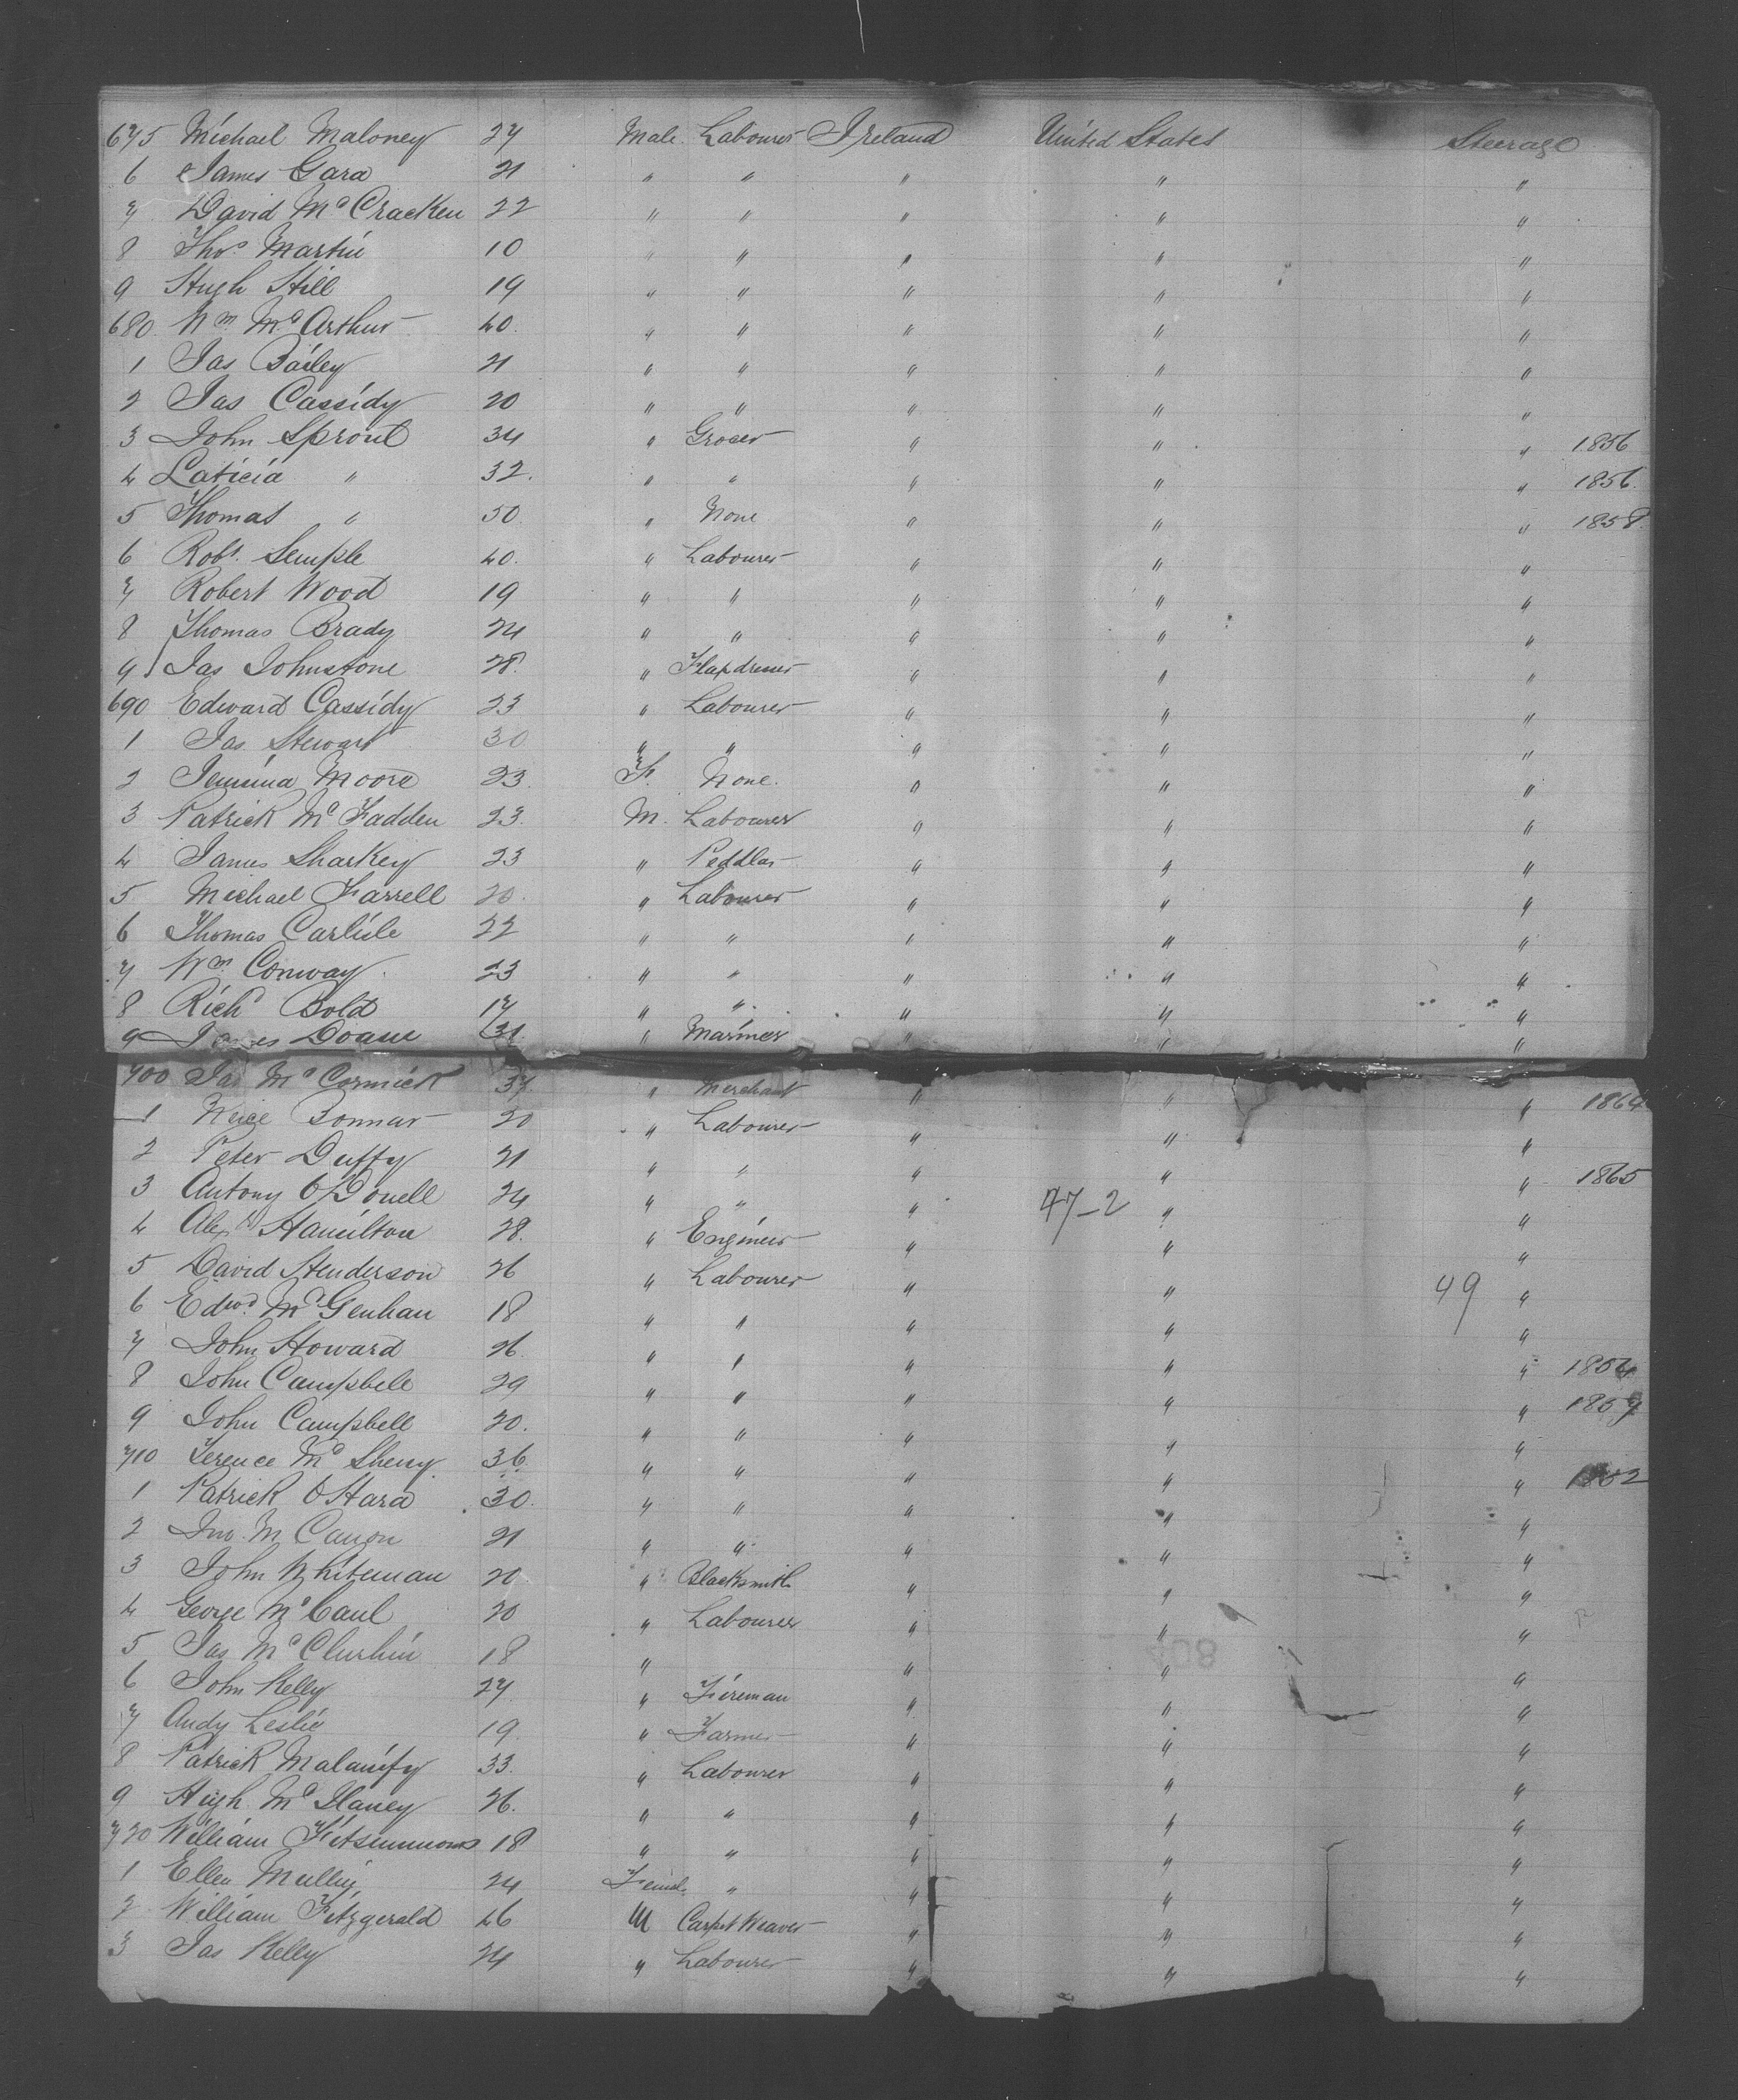 675 Michael Maloney 27 Male Labourer Ireland United States Steerage
6 James Gara 21 " " " " "
7 David McCracken 22 " " " " "
8 Thos Martin 10 " " " " "
9 Hugh Hill 19 " " " " "
680 Wm McArthur 40 " " " " "
1 Jas Bailey 21 " " " " "
2 Jas Cassidy 20 " " " " "
3 John Sproul 34 " Grocer " " " 1856
4 Laticia " 32 " " " " " 1856
5 Thomas " 50 " None " " " 1858
6 Robt Semple 40 " Labourer " " "
7 Robert Wood 19 " " " " "
8 Thomas Brady 24 " " " " "
9 Jas Johnstone 28 " Flaxdresser " " "
690 Edward Cassidy 23 " Labourer " " "
1 Jas Stewart 30 " " " " "
2 Jemima Moore 23 F. None " " "
3 Patrick McFadden 23 M. Labourer " " "
4 James Sharkey 23 " Peddlar " " "
5 Michael Farrell 20 " Labourer " " "
6 Thomas Carlisle 22 " " " " "
7 Wm Conway 23 " " " " "
8 Richd Bold 17 " " " " "
9 James Doane 31 " Mariner " " "
700 Jas McCormick 37 " Merchant " " " 1864
1 Bonnar 20 " Labourer " " "
2 Peter Duffy 21 " " " " " 1865
3 Antony O'Donell 24 " " " 47-2 " "
4 Alex Hamilton 28 " Engineer " " "
5 David Henderson 26 " Labourer " " 49 "
6 Edwd McGenhan 18 " " " " "
7 John Howard 26 " " " " " 1854
8 John Campbell 29 " " " " " 1857
9 John Campbell 20 " " " " "
710 Terence McSherry 36 " " " " " 1852
1 Patrick O'Hara 30 " " " " "
2 Jno McCanon 21 " " " " "
3 John Whiteman 20 " Blacksmith " " "
4 George McCaul 20 " Labourer " " "
5 Jas 18 " " " "
6 John Kelly 27 " Fireman " " "
7 Andy Leslie 19 " Farmer " " "
8 Patrick Malanify 33 " Labourer " " "
9 Hugh McIlaney 26 " " " " "
720 William Fitsimmons 18 " " " " "
1 Ellen Mulling 24 Femal " " " "
2 William Fitzgerald 46 M Carpet Weaver " " "
3 Jas Kelly 24 " Labourer " " "